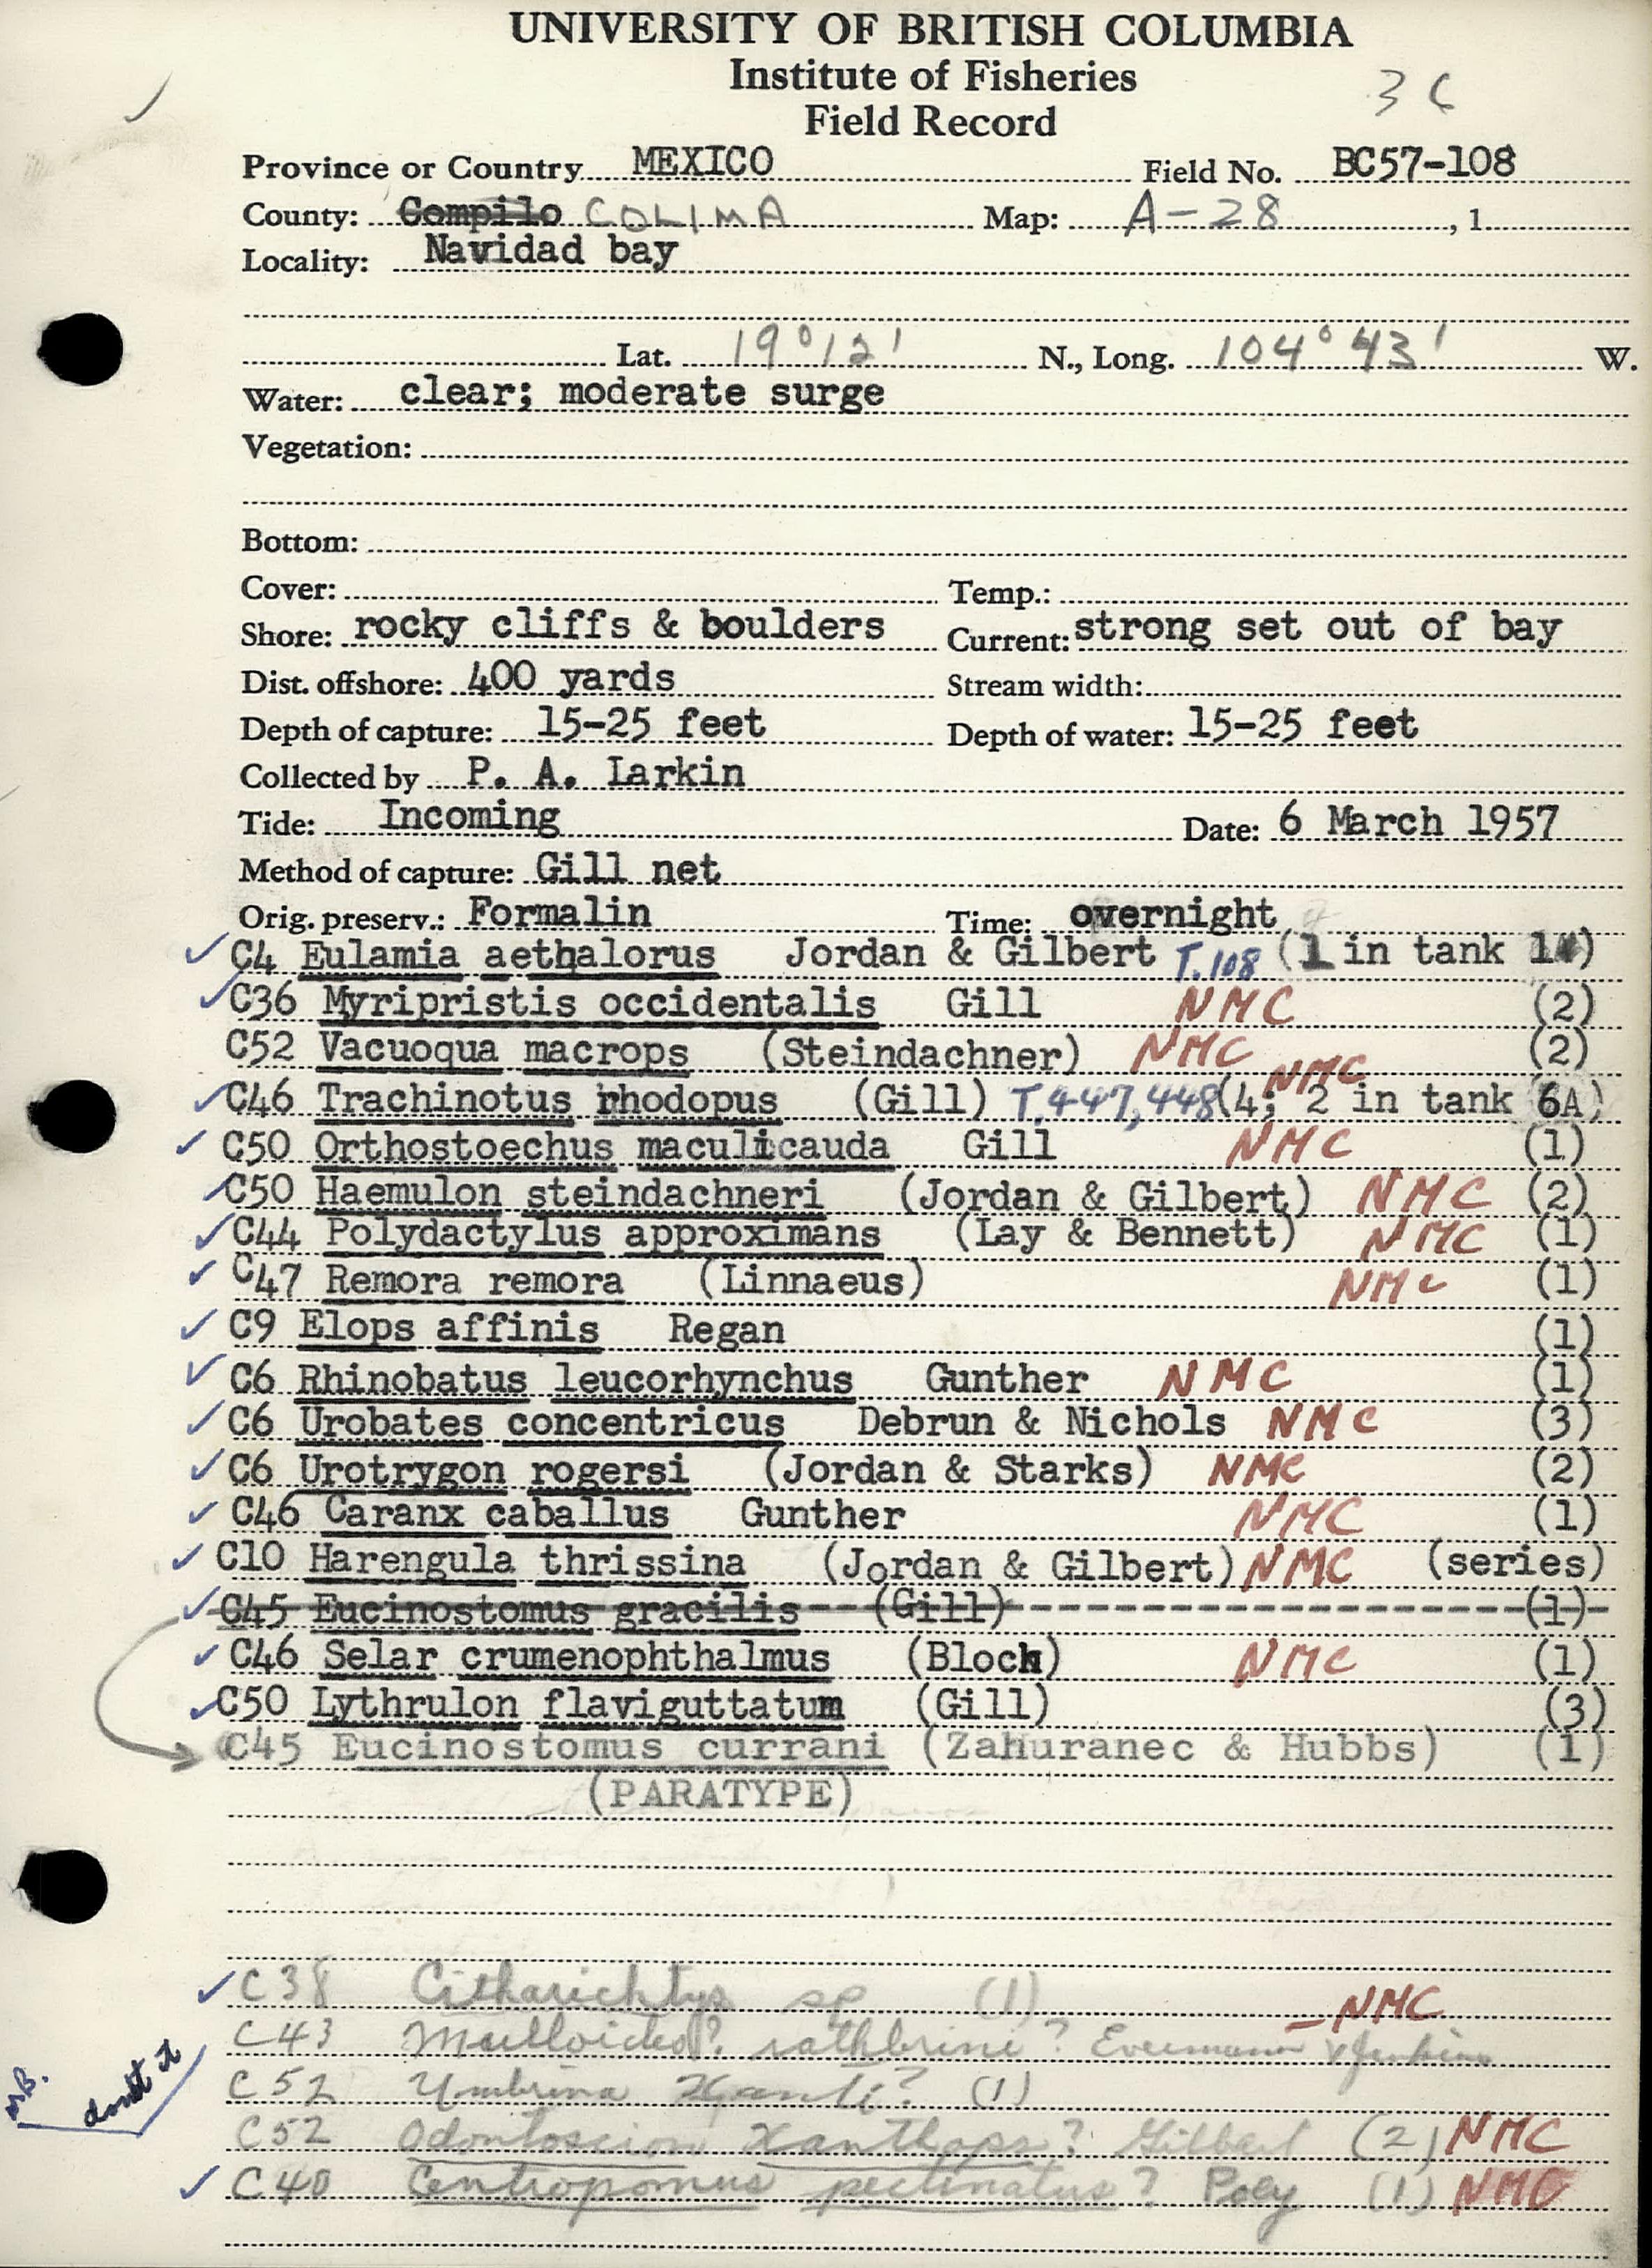 UNIVERSITY OF BRITISH COLUMBIA
Institute of Fisheries
36
Field Record
Province or Country MEXICO Field No. BC57-108
County: Compilo COLIMA Map: A-28 , 1
Locality: Navidad bay
Lat. 19°12' N., Long. 104°43' W.
Water: clear; moderate surge
Vegetation:
Bottom:
Cover: Temp.:
Shore: rocky cliffs & boulders Current: strong set out of bay
Dist. offshore: 400 yards Stream width:
Depth of capture: 15-25 feet Depth of water: 15-25 feet
Collected by P. A. Larkin
Tide: Incoming Date: 6 March 1957
Method of capture: Gill net
Orig. preserv.: Formalin Time: overnight
✓ C4 Eulamia aethalorus Jordan & Gilbert T.108 (1 in tank 14)
✓ C36 Myripristis occidentalis Gill NMC (2)
C52 Vacuoqua macrops (Steindachner) NMC (2)
✓ C46 Trachinotus rhodopus (Gill) T.447,448 (4; 2 in tank 6A) NMC
✓ C50 Orthostoechus maculicauda Gill NMC (1)
✓ C50 Haemulon steindachneri (Jordan & Gilbert) NMC (2)
✓ C44 Polydactylus approximans (Lay & Bennett) NMC (1)
✓ C47 Remora remora (Linnaeus) NMC (1)
✓ C9 Elops affinis Regan (1)
✓ C6 Rhinobatus leucorhynchus Gunther NMC (1)
✓ C6 Urobates concentricus Debrun & Nichols NMC (3)
✓ C6 Urotrygon rogersi (Jordan & Starks) NMC (2)
✓ C46 Caranx caballus Gunther NMC (1)
✓ C10 Harengula thrissina (Jordan & Gilbert) NMC (series)
✓ C45 Eucinostomus gracilis (Gill) (1)
✓ C46 Selar crumenophthalmus (Bloch) NMC (1)
✓ C50 Lythrulon flaviguttatum (Gill) (3)
C45 Eucinostomus currani (Zahuranec & Hubbs) (1)
(PARATYPE)
✓ C38 Citharichtys sp (1) NMC
C43 Mulloides? rathbrini? Evermann & Jenkins
doubt it C52 Umbrina Xanti? (1)
C52 Odontoscion Xanthops? Gilbert (2) NMC
✓ C40 Centropomus pectinatus? Poey (1) NMC